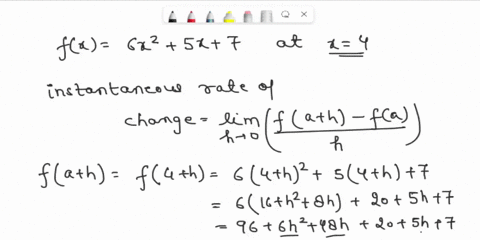 f(x) = 6x² + 5x + 7 at x = 4
instantaneous rate of
change = lim h→0 (f(a+h) − f(a) / h)
f(a+h) = f(4+h) = 6(4+h)² + 5(4+h) + 7
= 6(16 + h² + 8h) + 20 + 5h + 7
= 96 + 6h² + 48h + 20 + 5h + 7